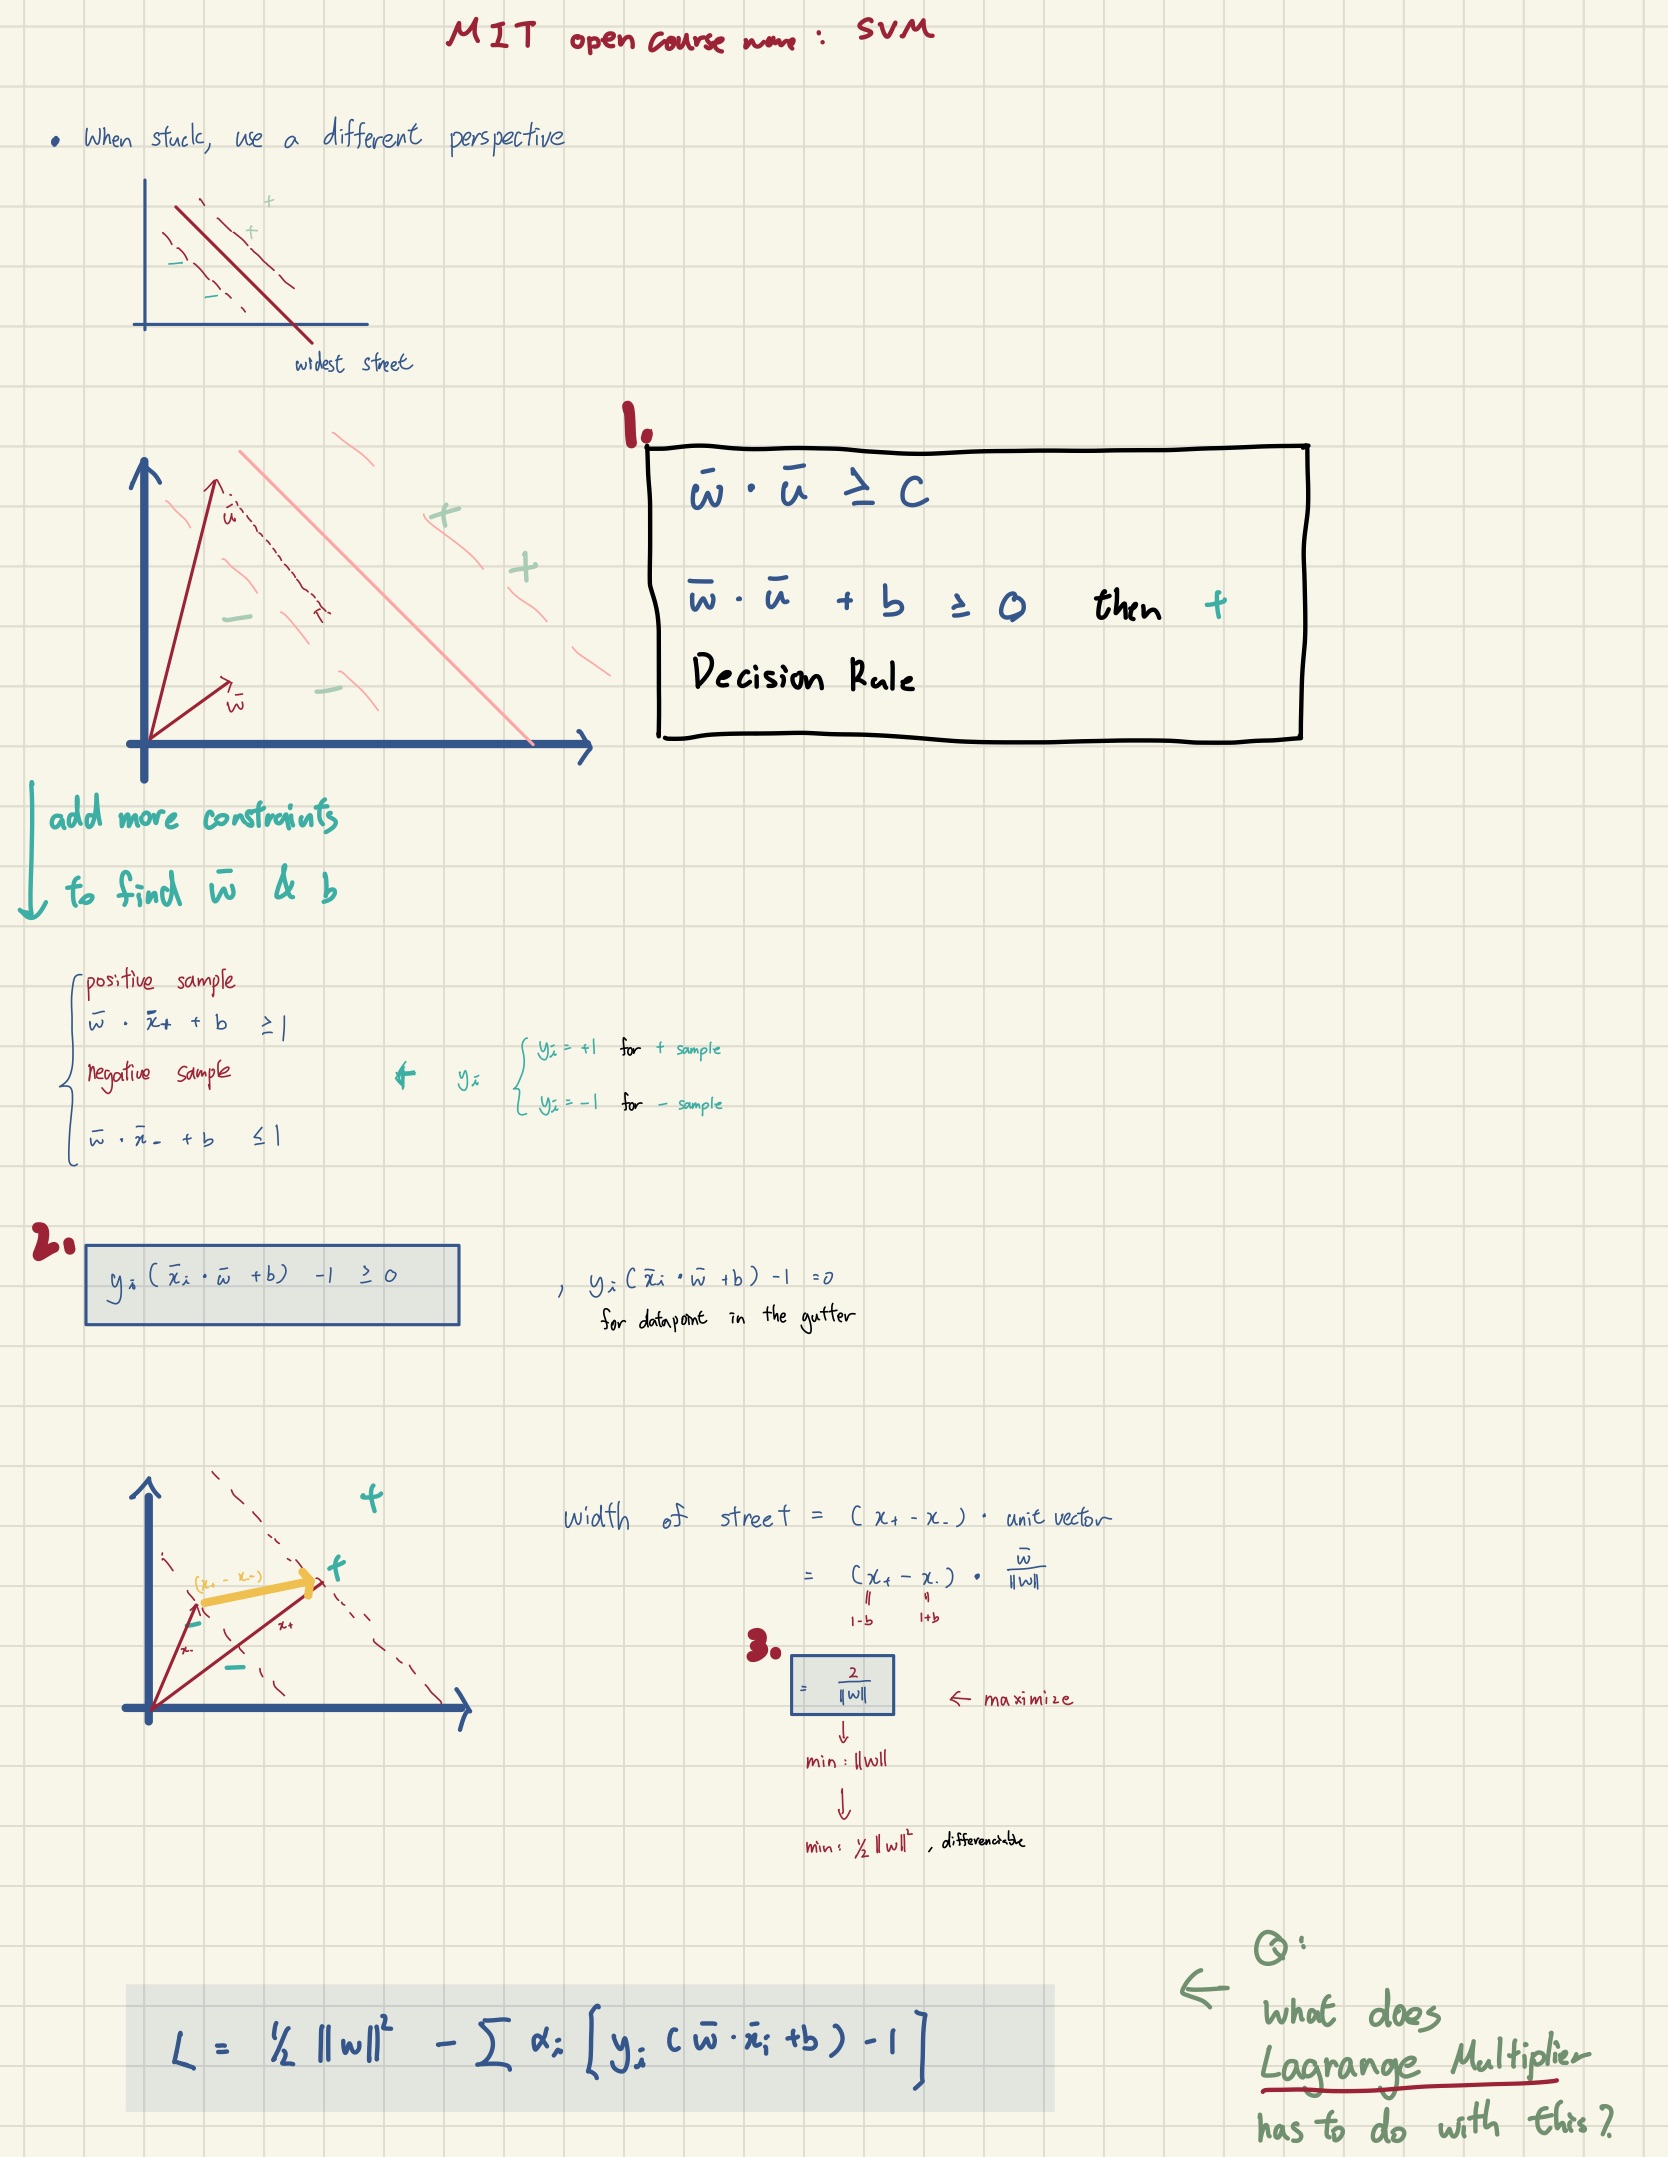 MIT open course ware : SVM
• When stuck, use a different perspective
+
+
−
−
widest street
1.
w̄ · ū ≥ C
w̄ · ū + b ≥ 0 then +
Decision Rule
ū
+
+
−
−
w̄
add more constraints
to find w̄ & b
positive sample
w̄ · x̄₊ + b ≥ 1
negative sample
w̄ · x̄₋ + b ≤ 1
← yᵢ { yᵢ = +1 for + sample
yᵢ = -1 for - sample
2.
yᵢ (x̄ᵢ · w̄ + b) -1 ≥ 0 , yᵢ (x̄ᵢ · w̄ + b) -1 = 0
for datapoint in the gutter
+
+
(x₊ - x₋)
−
x₊
x₋
−
width of street = (x₊ - x₋) · unit vector
= (x₊ - x₋) · w̄/||w||
|| ||
1-b 1+b
3.
= 2/||w|| ← maximize
↓
min : ||w||
↓
min : ½ ||w||² , differentiable
L = ½ ||w||² - ∑ αᵢ [yᵢ (w̄ · x̄ᵢ + b) - 1]
← Q :
what does
Lagrange Multiplier
has to do with this?